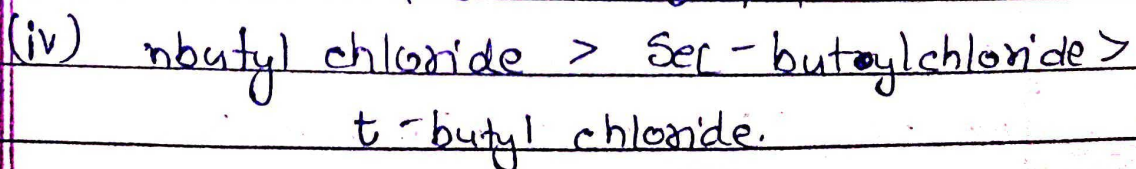 (iv) nbutyl chloride > Sec-butylchloride >
t-butyl chloride.